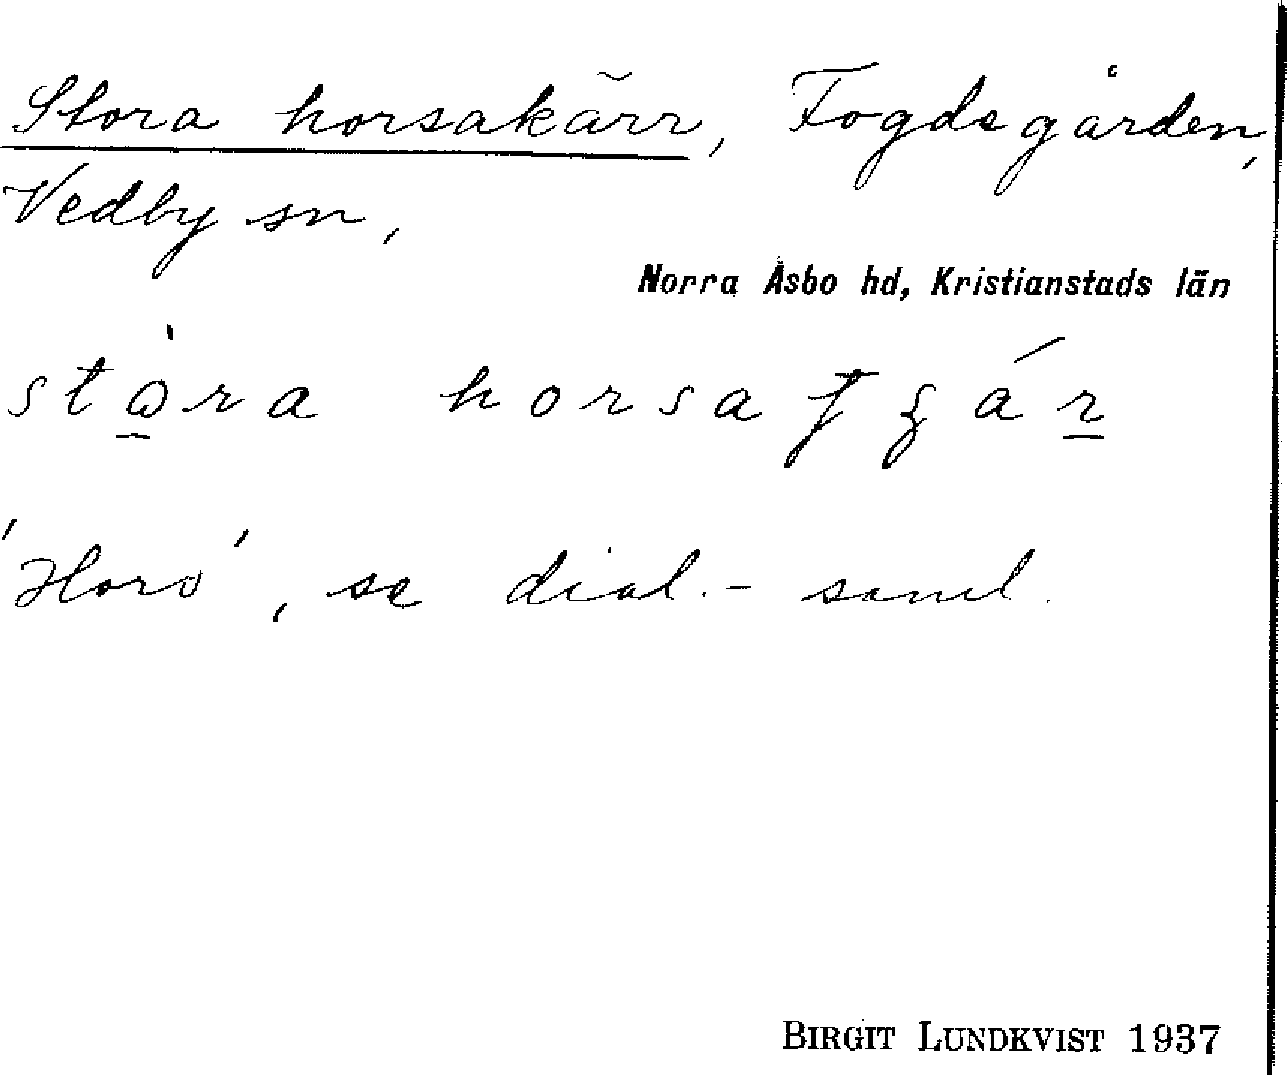 Stora horsakärr, Fogdsgården,
Vedby sn,
Norra Åsbo hd, Kristianstads län
stòra horsa
'Hors', se dial.-saml.
BIRGIT LUNDKVIST 1937